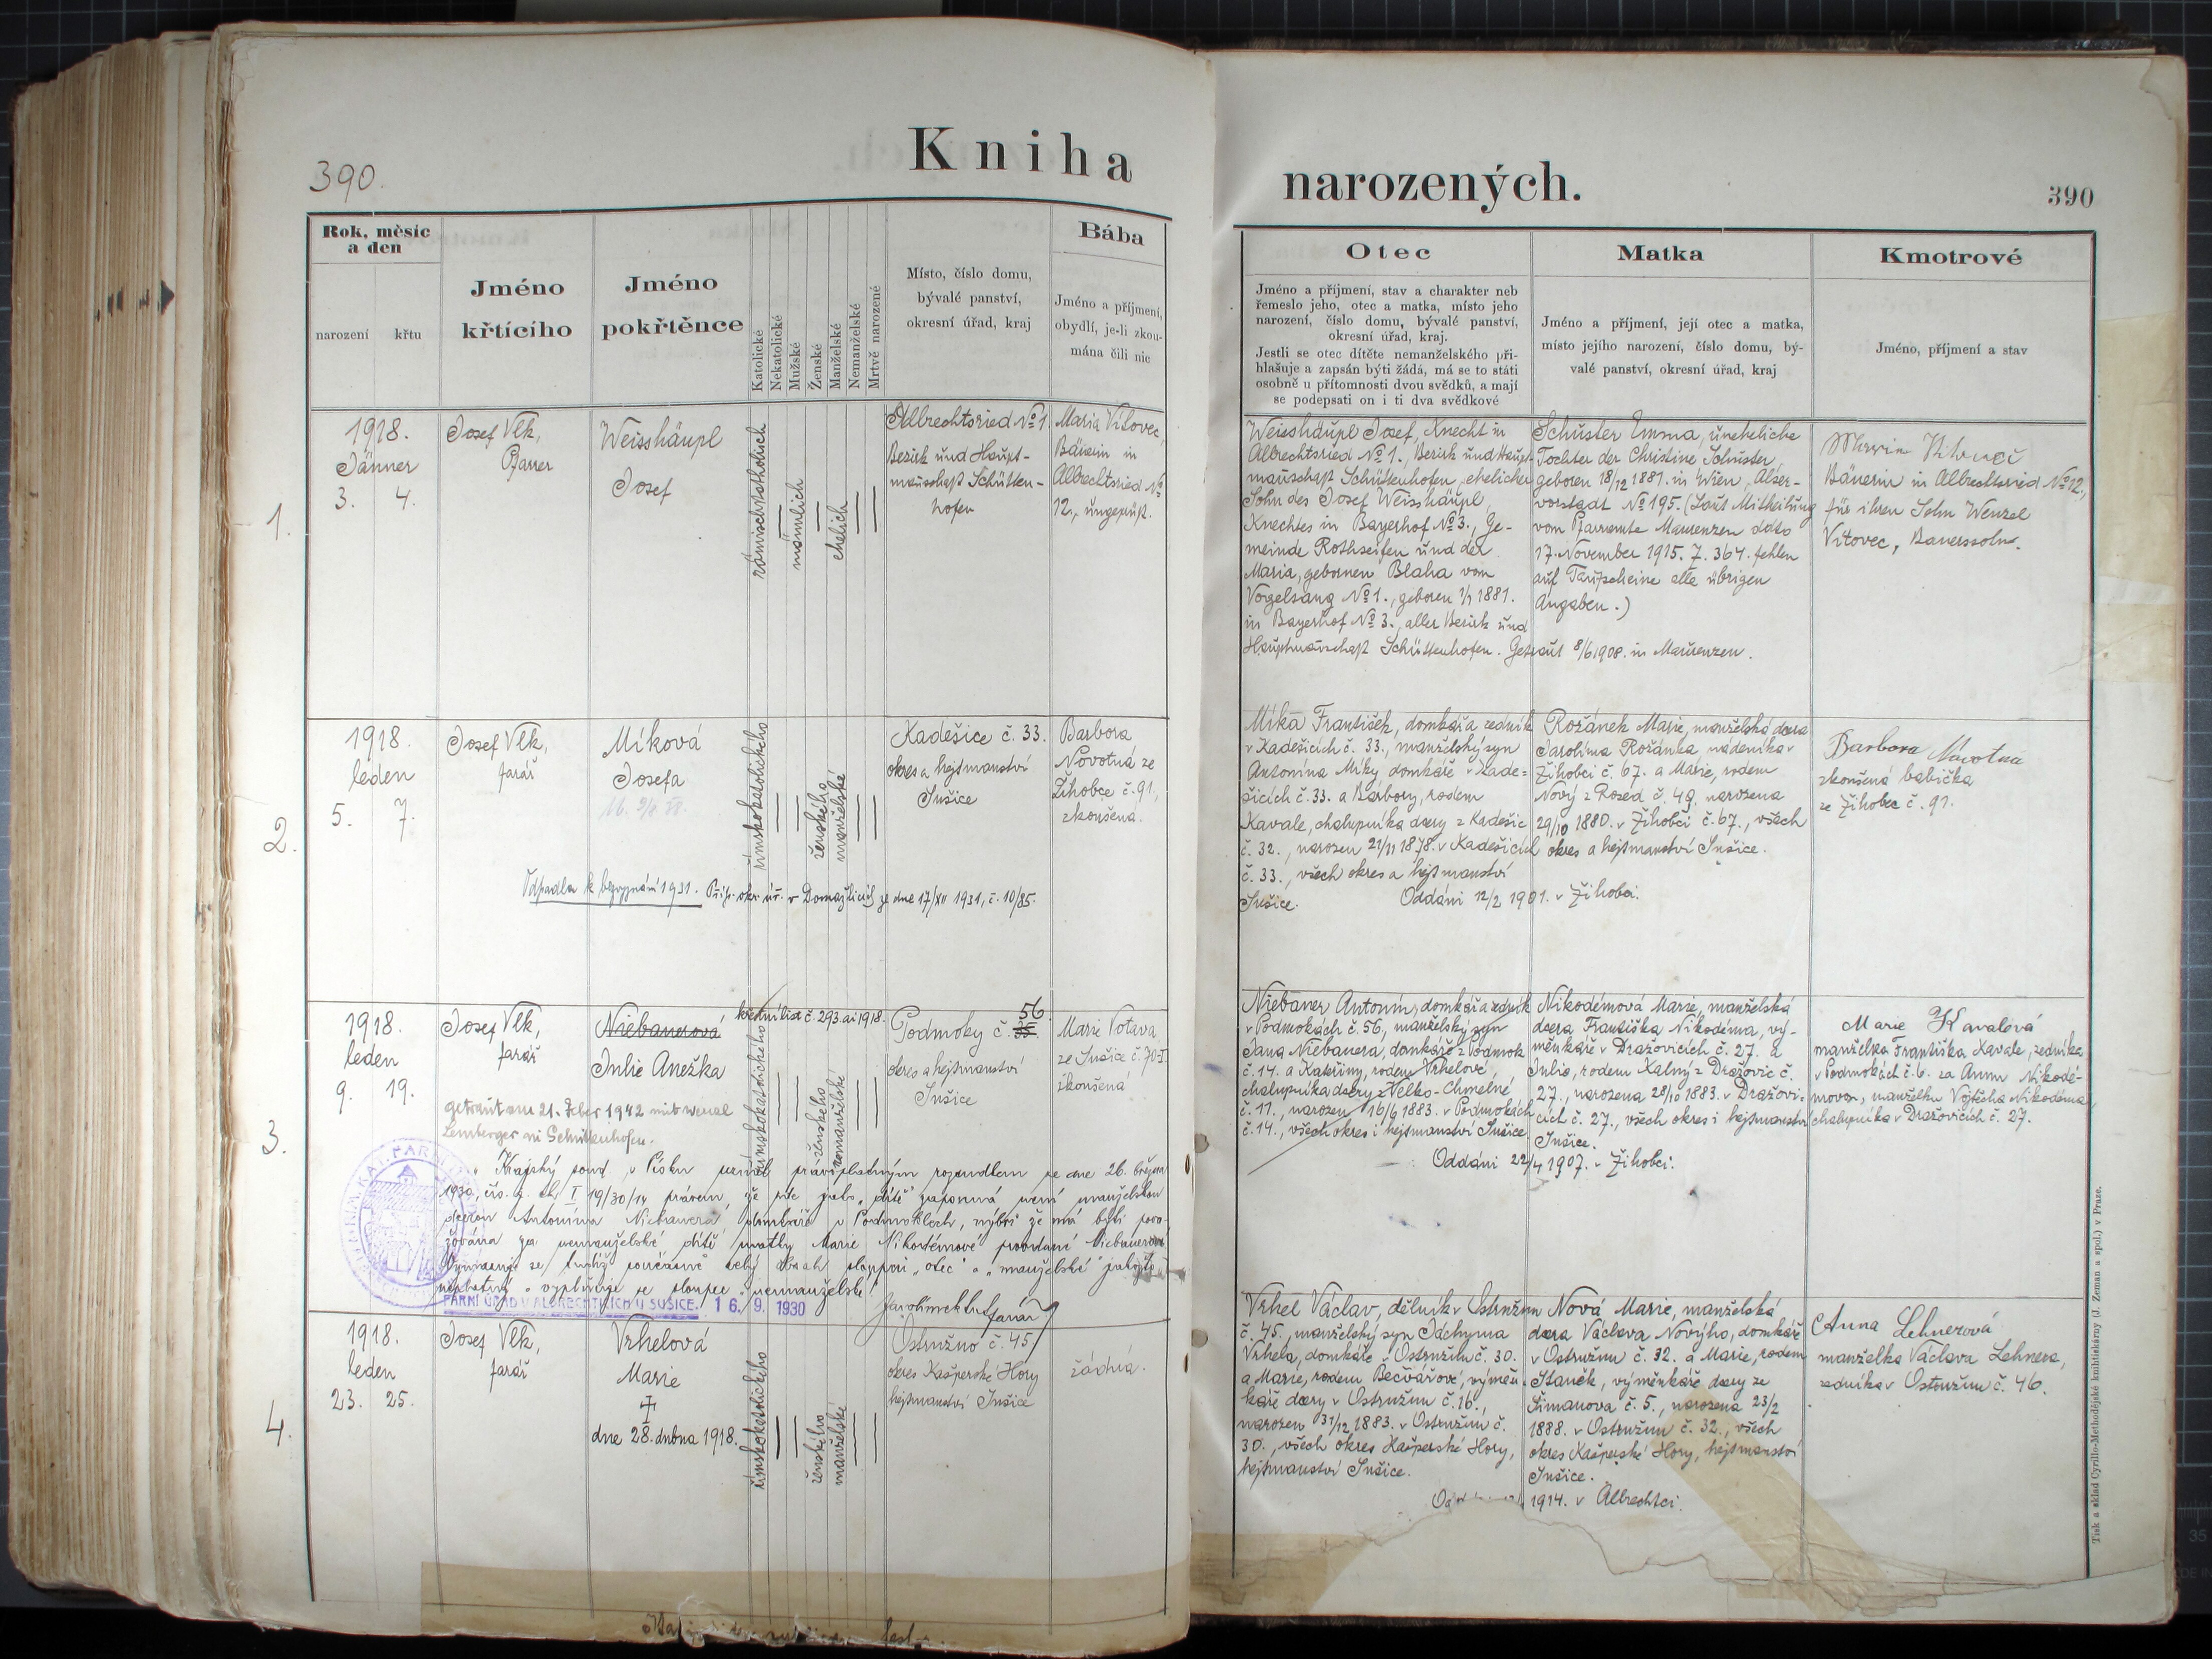 390.
Kniha
narozených.
390
Rok, měsíc
a den
narození
křtu
Jméno
křtícího
Jméno
pokřtěnce
Katolické
Nekatolické
Mužské
Ženské
Manželské
Nemanželské
Mrtvě narozené
Místo, číslo domu,
bývalé panství,
okresní úřad, kraj
Bába
Jméno a příjmení,
obydlí, je-li zkou-
mána čili nic
Otec
Jméno a příjmení, stav a charakter neb
řemeslo jeho, otec a matka, místo jeho
narození, číslo domu, bývalé panství,
okresní úřad, kraj.
Jestli se otec dítěte nemanželského při-
hlašuje a zapsán býti žádá, má se to státi
osobně u přítomnosti dvou svědků, a mají
se podepsati on i ti dva svědkové
Matka
Jméno a příjmení, její otec a matka,
místo jejího narození, číslo domu, bý-
valé panství, okresní úřad, kraj
Kmotrové
Jméno, příjmení a stav
1.
1918.
Jänner
3. 4.
Josef Vlk,
Pfarrer
Weisshäupl
Josef
römischkatholisch
männlich
ehelich
Albrechtsried No 1.
Bezirk und Haupt-
mannschaft Schütten-
hofen
Maria Vitovec,
Bäuerin in
Albrechtsried No
12, ungeprüft.
Weisshäupl Josef, Knecht in
Albrechtsried No 1., Bezirk und Haupt-
mannschaft Schüttenhofen, ehelicher
Sohn des Josef Weisshäupl,
Knechtes in Bayerhof No 3., Ge-
meinde Rothseifen und der
Maria, gebornen Blaha vom
Vogelsang No 1., geboren 1/1 1881.
in Bayerhof No 3., aller Bezirk und
Hauptmannschaft Schüttenhofen. Getraut 8/6 1908. in Maurenzen.
Schuster Emma, uneheliche
Tochter der Christine Schuster,
geboren 18/12 1881. in Wien, Alser-
vorstadt No 195. (Laut Mittheilung
vom Pfarramte Maurenzen ddto
17. November 1915. Z. 364. fehlen
auf Taufscheine alle übrigen
Angaben.)
Bäuerin in Albrechtsried No 12.,
für ihren Sohn Wenzel
Vitovec, Bauerssohn.
2.
1918.
leden
5. 7.
Josef Vlk,
farář
Míková
Josefa
římskokatolického
ženského
manželské
Kadešice č. 33.
okres a hejtmanství
Sušice
Barbora
Novotná ze
Žihobce č. 91.,
zkoušena.
Odpadla k bezvyznání 1931. Příp. okr. úř. v Domažlicích ze dne 17/XII 1931, č. 10/85.
Míka František, domkář a zedník
v Kadešicích č. 33., manželský syn
Antonína Míky, domkáře v Kade-
šicích č. 33. a Barbory, rodem
Kavale, chalupníka dcery z Kadešic
č. 32., narozen 21/11 1878. v Kadešicích
č. 33., všech okres a hejtmanství
Sušice. Oddáni 12/2 1901. v Žihobci.
Rožánek Marie, manželská dcera
Jarolíma Rožánka, nádeníka v
Žihobci č. 67. a Marie, rodem
Nový z Rozed č. 49, narozena
29/10 1880. v Žihobci č. 67., všech
okres a hejtmanství Sušice.
Barbora Novotná
zkoušená babička
ze Žihobce č. 91.
3.
1918.
leden
9. 19.
Josef Vlk,
farář
Niebauerová
Julie Anežka
křestní list č. 293. ai 1918.
římskokatolického
ženského
nemanželské
Podmoky č. 56
okres a hejtmanství
Sušice
Marie Votava
ze Sušice č. 70 I.
zkoušená
getraut am 21. Feber 1942 mit Wenzel
Lemberger in Schüttenhofen.
Krajský soud v Písku uznal právoplatným rozsudkem ze dne 26. března
1930, čís. j. Ck I 19/30/14 právem, že níže jako „dítě" zapsaná není manželskou
dcerou Antonína Niebauera, domkáře v Podmoklech, nýbrž že má býti pova-
žována za nemanželské dítě matky Marie Nikodémové provdané Niebauerové.
neplatný a vyplňuje se sloupec „nemanželské".
FARNÍ ÚŘAD V ALBRECHTICÍCH U SUŠICE. 16. 9. 1930
farář
Niebauer Antonín, domkář a zedník
v Podmokách č. 56, manželský syn
Jana Niebauera, domkáře z Podmok
č. 14. a Kateřiny, rodem Vrhelové,
chalupníka dcery z Velko-Chmelné
č. 11., narozen 16/6 1883. v Podmokách
č. 14., všech okres i hejtmanství Sušice.
Oddáni 22/4 1907. v Žihobci.
Nikodémová Marie, manželská
dcera Františka Nikodéma, vý-
měnkáře v Dražovicích č. 27. a
Julie, rodem Kalný z Dražovic č.
27., narozena 28/10 1883. v Dražovi-
cích č. 27., všech okres i hejtmanství
Sušice.
Marie Kavalová
manželka Františka Kavale, zedníka
v Podmokách č. 6. za Annu Nikodé-
movou, manželku Vojtěcha Nikodéma,
chalupníka v Dražovicích č. 27.
4.
1918.
leden
23. 25.
Josef Vlk,
farář
Vrhelová
Marie
†
dne 28. dubna 1918.
římskokatolického
ženského
manželské
Ostružno č. 45,
okres Kašperské Hory
hejtmanství Sušice
žádná.
Vrhel Václav, dělník v Ostružnu
č. 45., manželský syn Jáchyma
Vrhela, domkáře v Ostružnu č. 30.
a Marie, rodem Bečvářové, výměn-
káře dcery v Ostružnu č. 16.,
narozen 31/12 1883. v Ostružnu č.
30., všech okres Kašperské Hory,
hejtmanství Sušice.
1914. v Albrechtci.
Nová Marie, manželská
dcera Václava Nového, domkáře
v Ostružnu č. 32. a Marie, rodem
Staněk, výměnkáře dcery ze
Šimanova č. 5., narozena 23/2
1888. v Ostružnu č. 32., všech
okres Kašperské Hory, hejtmanství
Sušice.
Anna Lehnerová
manželka Václava Lehnera,
zedníka v Ostružnu č. 46.
Tisk a sklad Cyrillo-Methodějské knihtiskárny (J. Zeman a spol.) v Praze.